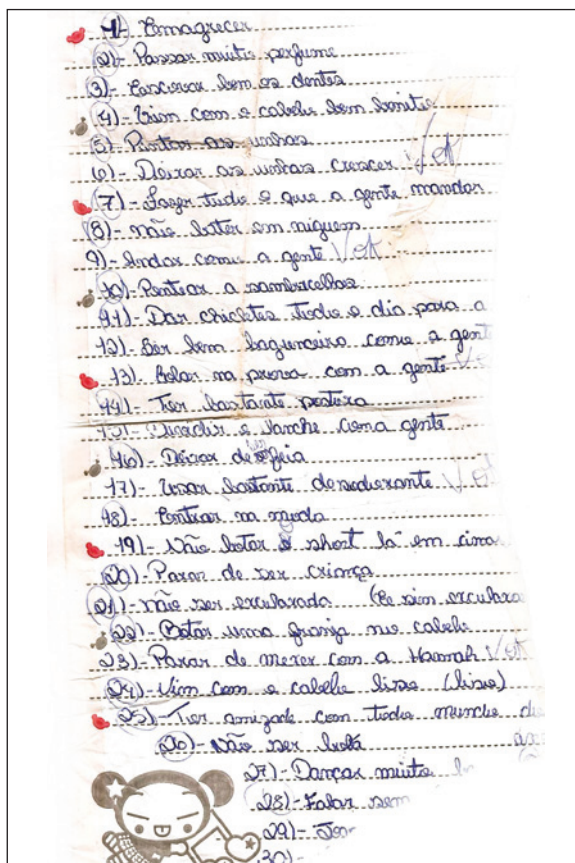 1)- Emagrecer
2)- Passar muito perfume
3)- Escovar bem os dentes
4)- Vim com o cabelo bem bonito
5)- Pintar as unhas
6)- Deixar as unhas crescer Vok
7)- Fazer tudo o que a gente mandar
8)- não bater em niguem
9)- Andar como a gente Vok
10)- Pentear a sombrecelhas
11)- Dar chicletes todo o dia para a
12)- Ser bem bagunceiro como a gent
13)- Colar na prova com a gente
14)- Ter bastante postura
15)- Dividir o lanche com a gente
16)- Deixar de ser feia
17)- Usar bastante desodorante Vok
18)- Entrar na moda
19)- Não botar o short la em cima
20)- Parar de ser criança
21)- não ser esculaxada (Ee sim esculaxa
22)- Botar uma franja no cabelo
23)- Parar de mexer com a Hannah Vok
24)- Vim com o cabelo liso (liso)
25)- Ter amizade com todo munche de
26)- Não ser
27)- Dançar muito
28)- Falar sem
29)-
30)-